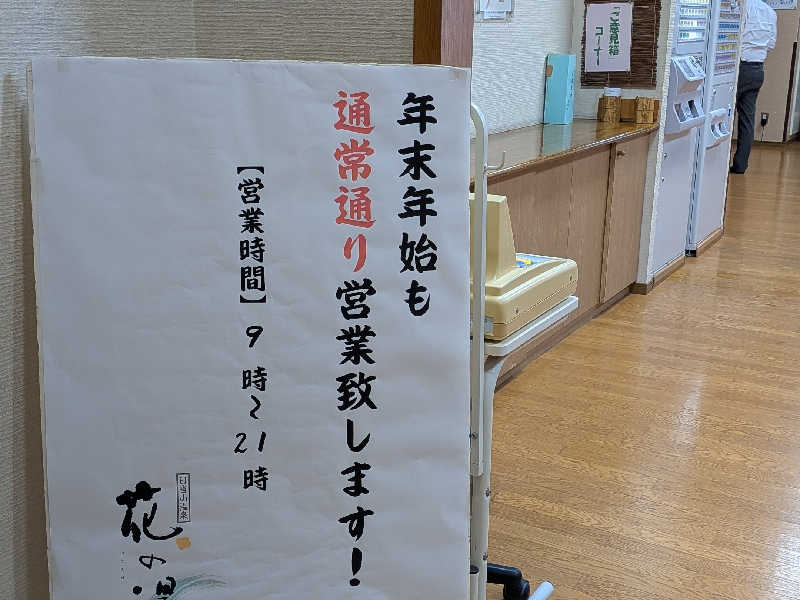 年末年始も
通常通り営業致します!
【営業時間】 9時~21時
日当山温泉
花の湯
ご意見箱
コーナー